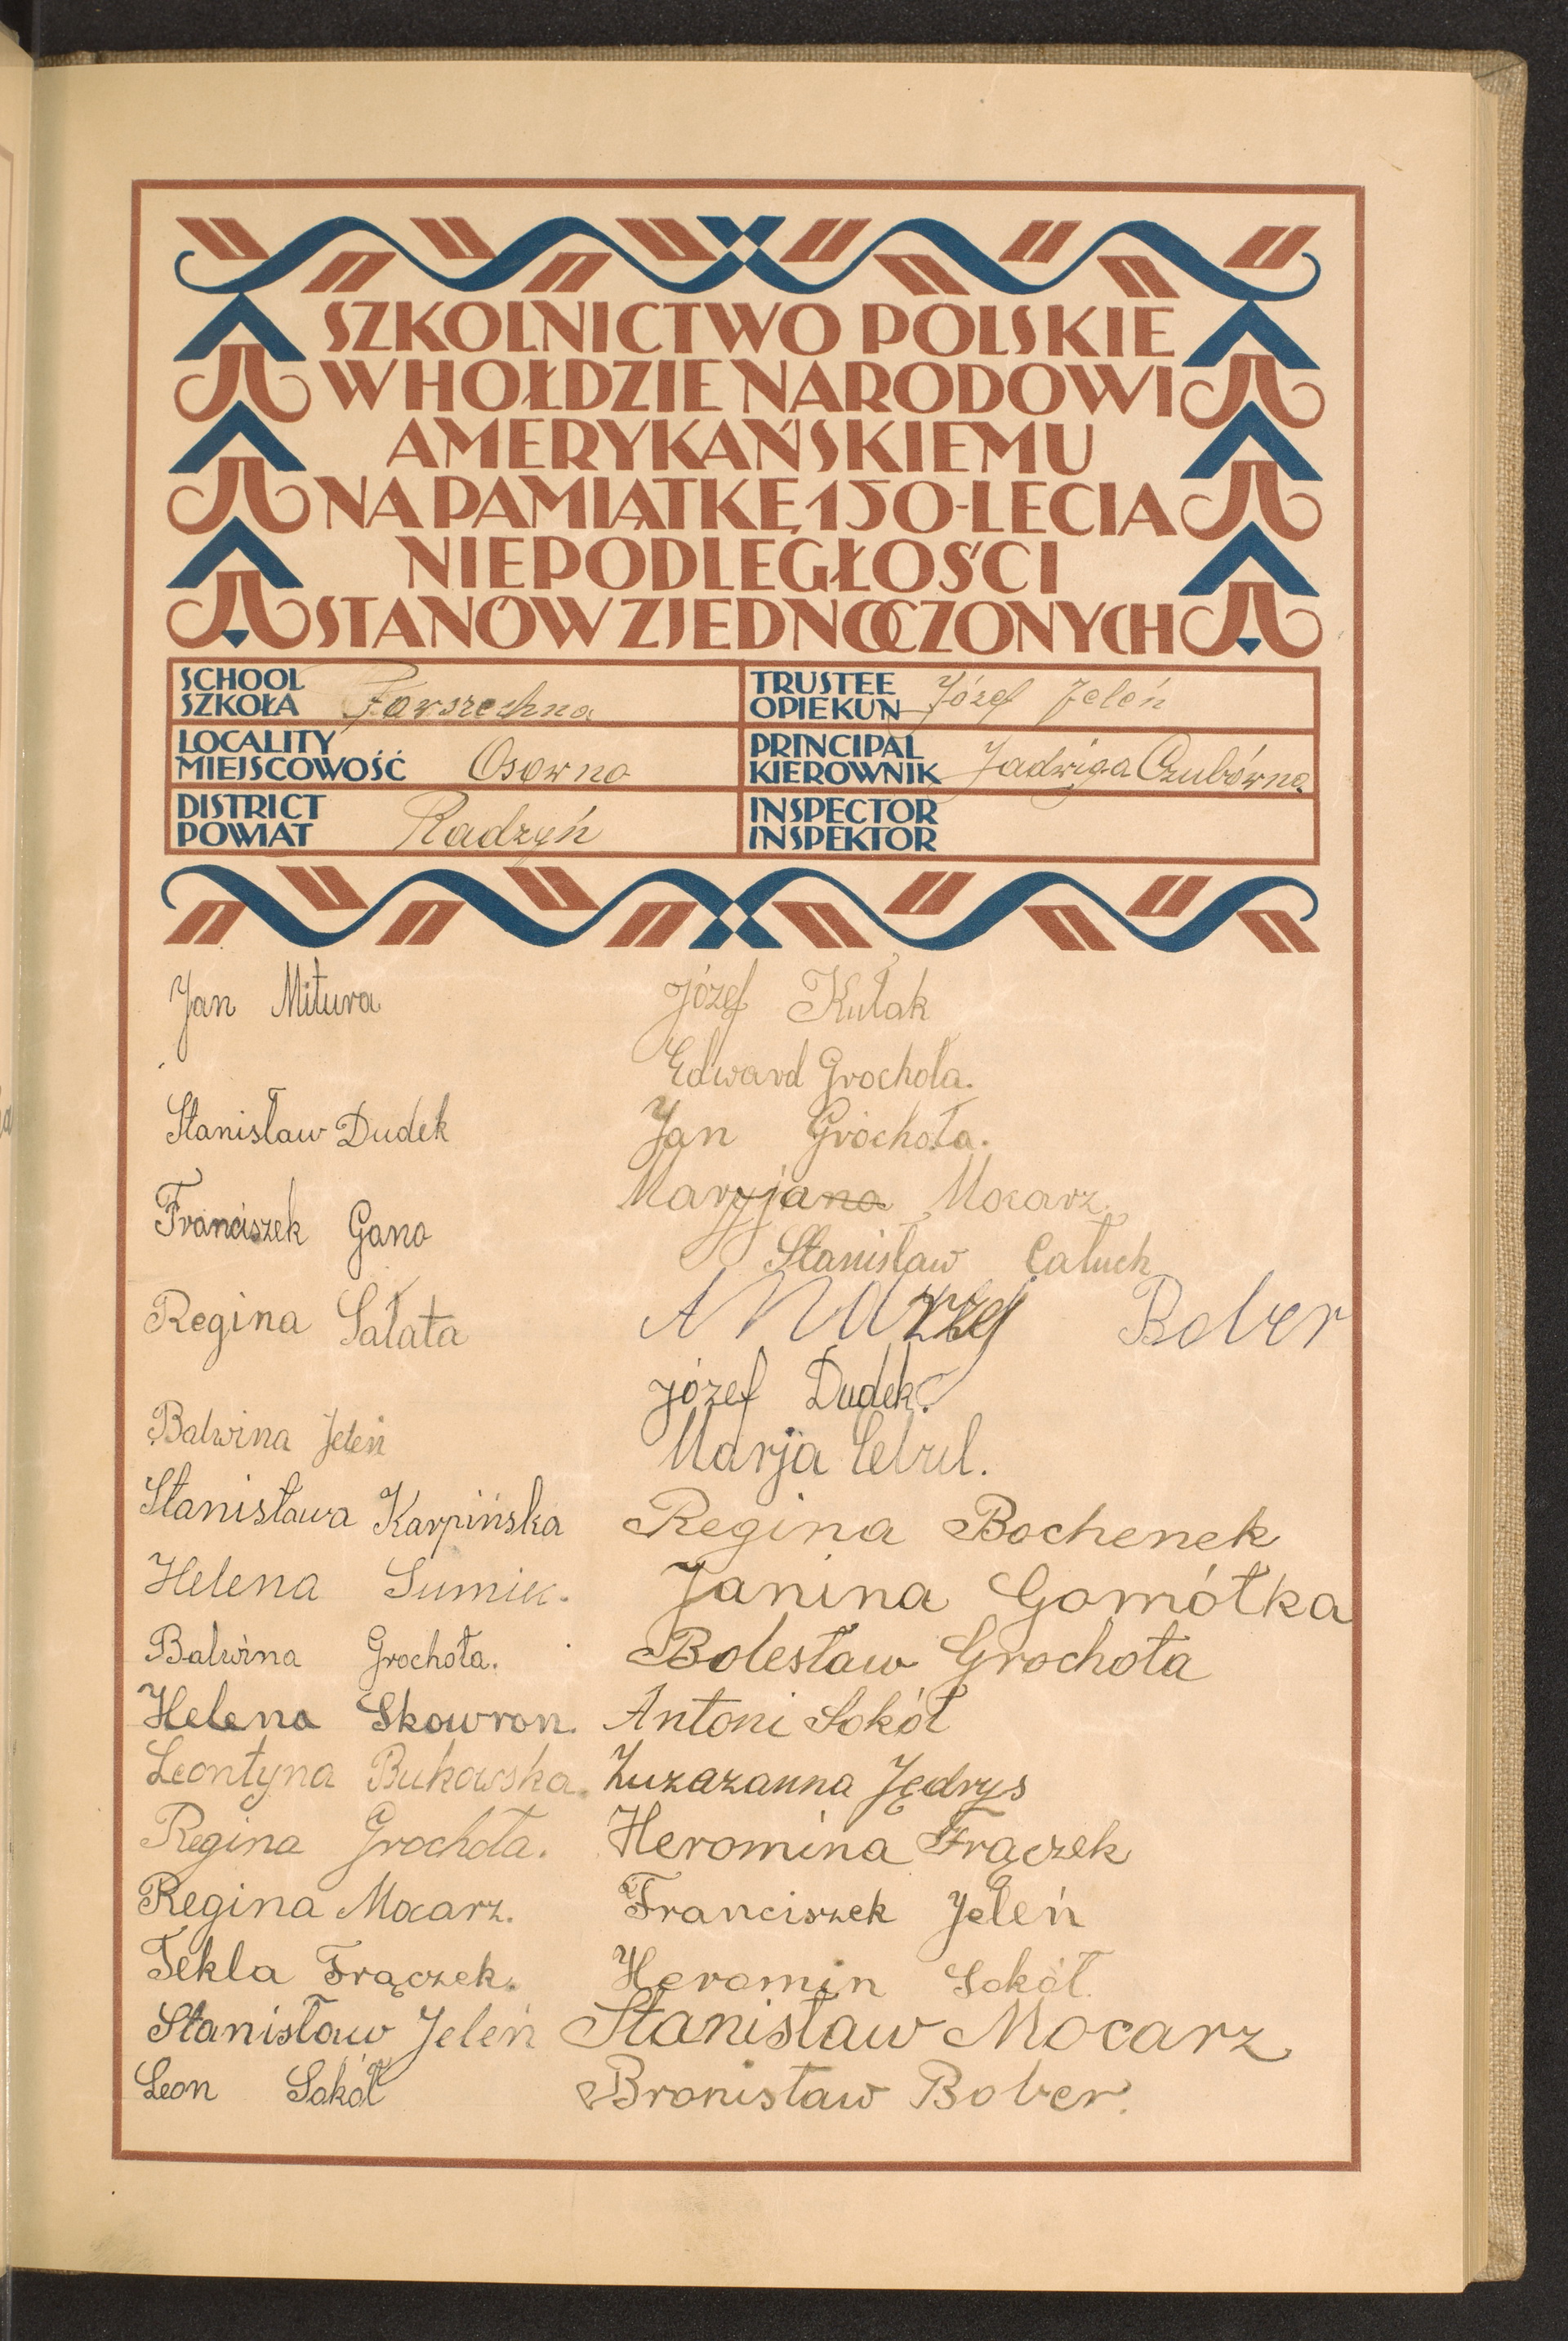 SZKOLNICTWO POLSKIE
W HOŁDZIE NARODOWI
AMERYKAŃSKIEMU
NA PAMIĄTKĘ 150-LECIA
NIEPODLEGŁOŚCI
STANÓW ZJEDNOCZONYCH
SCHOOL
SZKOŁA Powszechna
TRUSTEE
OPIEKUN Józef Jeleń
LOCALITY
MIEJSCOWOŚĆ Osowno
PRINCIPAL
KIEROWNIK Jadwiga Czubówna
DISTRICT
POWIAT Radzyń
INSPECTOR
INSPEKTOR
Jan Mitura
Stanisław Dudek
Franciszek Gano
Regina Sałata
Balwina Jeleń
Stanisława Karpińska
Helena
Balwina Grochoła.
Helena Skowron.
Leontyna Bukowska.
Regina Grochoła.
Regina Mocarz.
Tekla Frączek.
Stanisław Jeleń
Leon Sokół
Józef Kułak
Edward Grochoła.
Jan Grochoła.
Marjjana Mocarz
Stanisław Całuch
Andrzej Bober
Józef Dudek.
Marja Cebul.
Regina Bochenek
Janina Gomółka
Bolesław Grochoła
Antoni Sokół
Zuzazanna Jędrys
Heromina Frączek
Franciszek Jeleń
Heromin Sokół.
Stanisław Mocarz
Bronisław Bober.